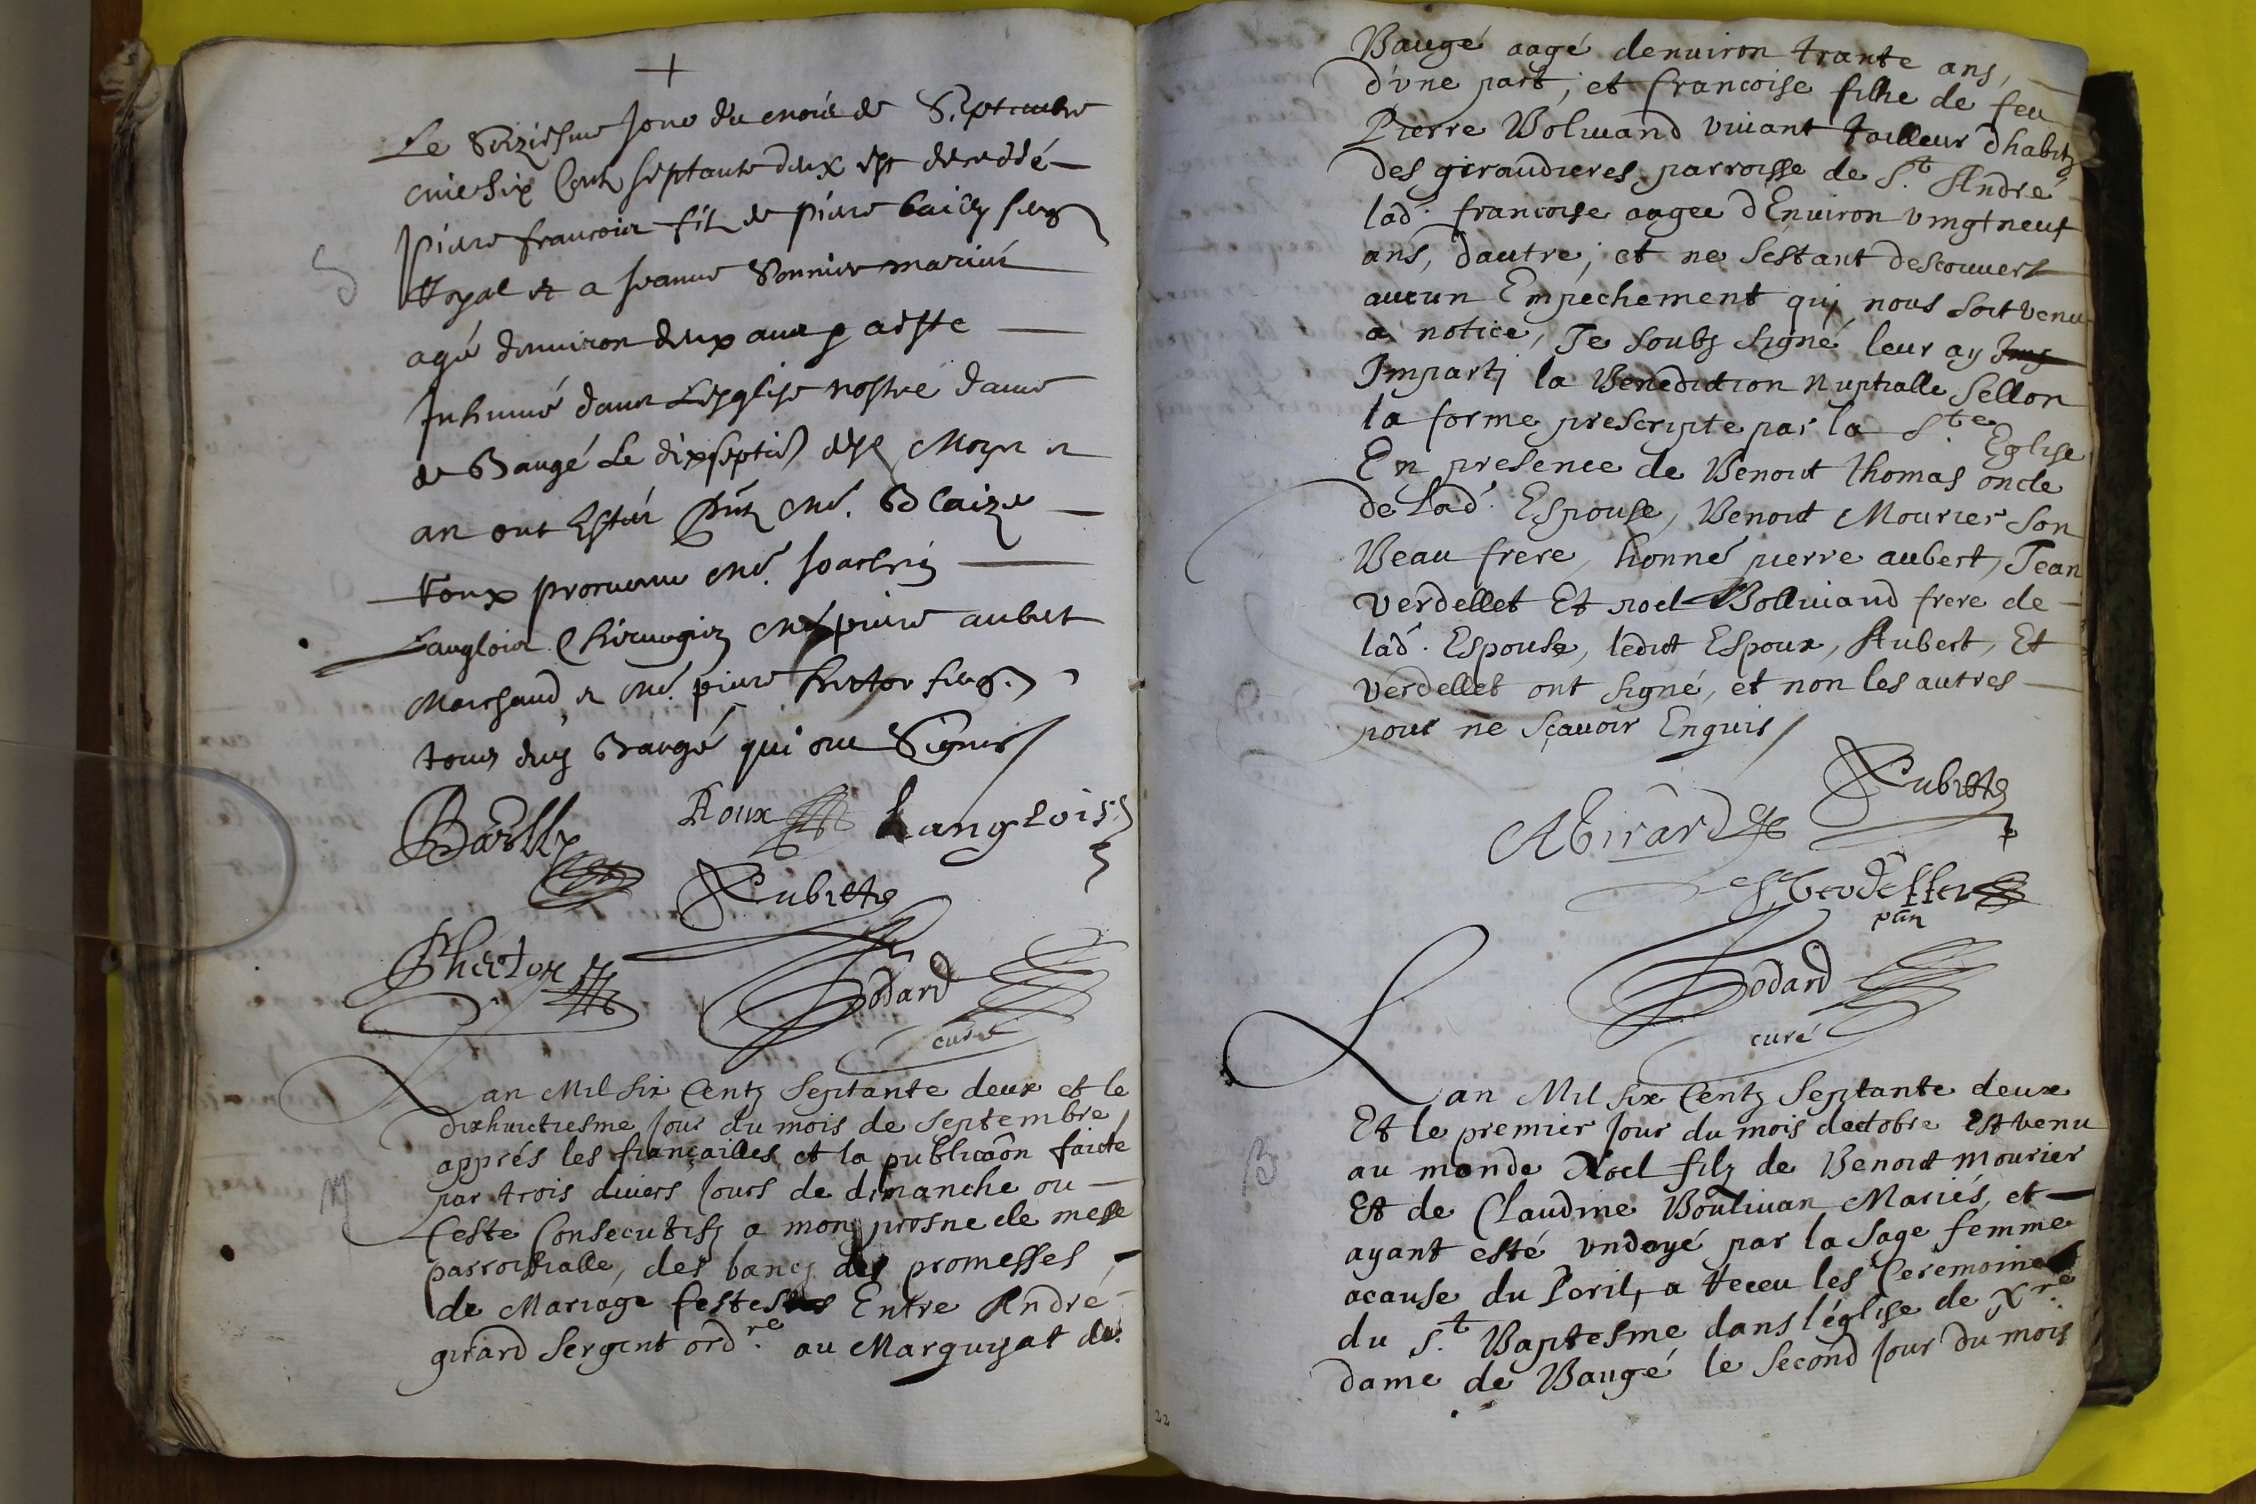 Le Seiziesme Jour du mois de Septembre
mil six Centz septante deux est decedé
pierre francois filz de pierre bailly serg
Royal et a Jeanne Sonnier mariés
agé denviron deux ans
Inhumé dans Lesglise nostre dame
de Baugé Le dixseptie desd Moys et
an ont Estés pntz Me. Blaize
Roux procureur Me. Joachin
Langlois Chirurgien Me pierre aubert
Marchand et Me. pierre hector serg.
tous dud Baugé qui ont Signés /
Bailly Roux Langlois
Aubert
P hector Godard
curé
Lan Mil six Centz Septante deux et le
dixhuictiesme Jour du mois de Septembre
apprés les fiançailles et la publicaôn faicte
par trois divers Jours de dimanche ou
feste Consecutifz a mon prosne de messe
parroishialle, des bancz des promesses
de Mariage festes Entre André
girard Sergent ord.re au Marquisat de
Baugé aagé denuiron trante ans,
d'vne part; et francoise fillie de feu
Pierre Boliuand viuant tailleur dhabitz
des giraudieres parroisse de S.t André
lad. francoise aagee dEnuiron vingt neuf
ans, dautre; et ne Sestant descouvert
aucun Empechement qui nous soit venu
a notice, Je soubz signé leur ay
Imparti la Benediction nuptialle Sellon
la forme prescripte par la S.te Eglise
En presence de Benoit thomas oncle
de Lad. Espouse, Benoit Mourier Son
Beau frere, honné pierre aubert, Jean
verdellet Et noel Bolliuand frere de
lad. Espouse, ledit Espoux, Aubert, Et
verdellet ont signé, et non les autres
pour ne sçauoir Enquis /
Aubert
A Girard
Verdellet
pnt
Godard
curé
Lan Mil six Centz Septante deux
Et le premier Jour du mois doctobre est venu
au monde Noel filz de Benoit mourier
Et de Claudine Boulivan Mariés, et
ayant esté vndoyé par la Sage femme
acause du Peril, a receu les Ceremoines
du S.t Baptesme dans l'église de Nre
dame de Baugé le second Jour du mois
22